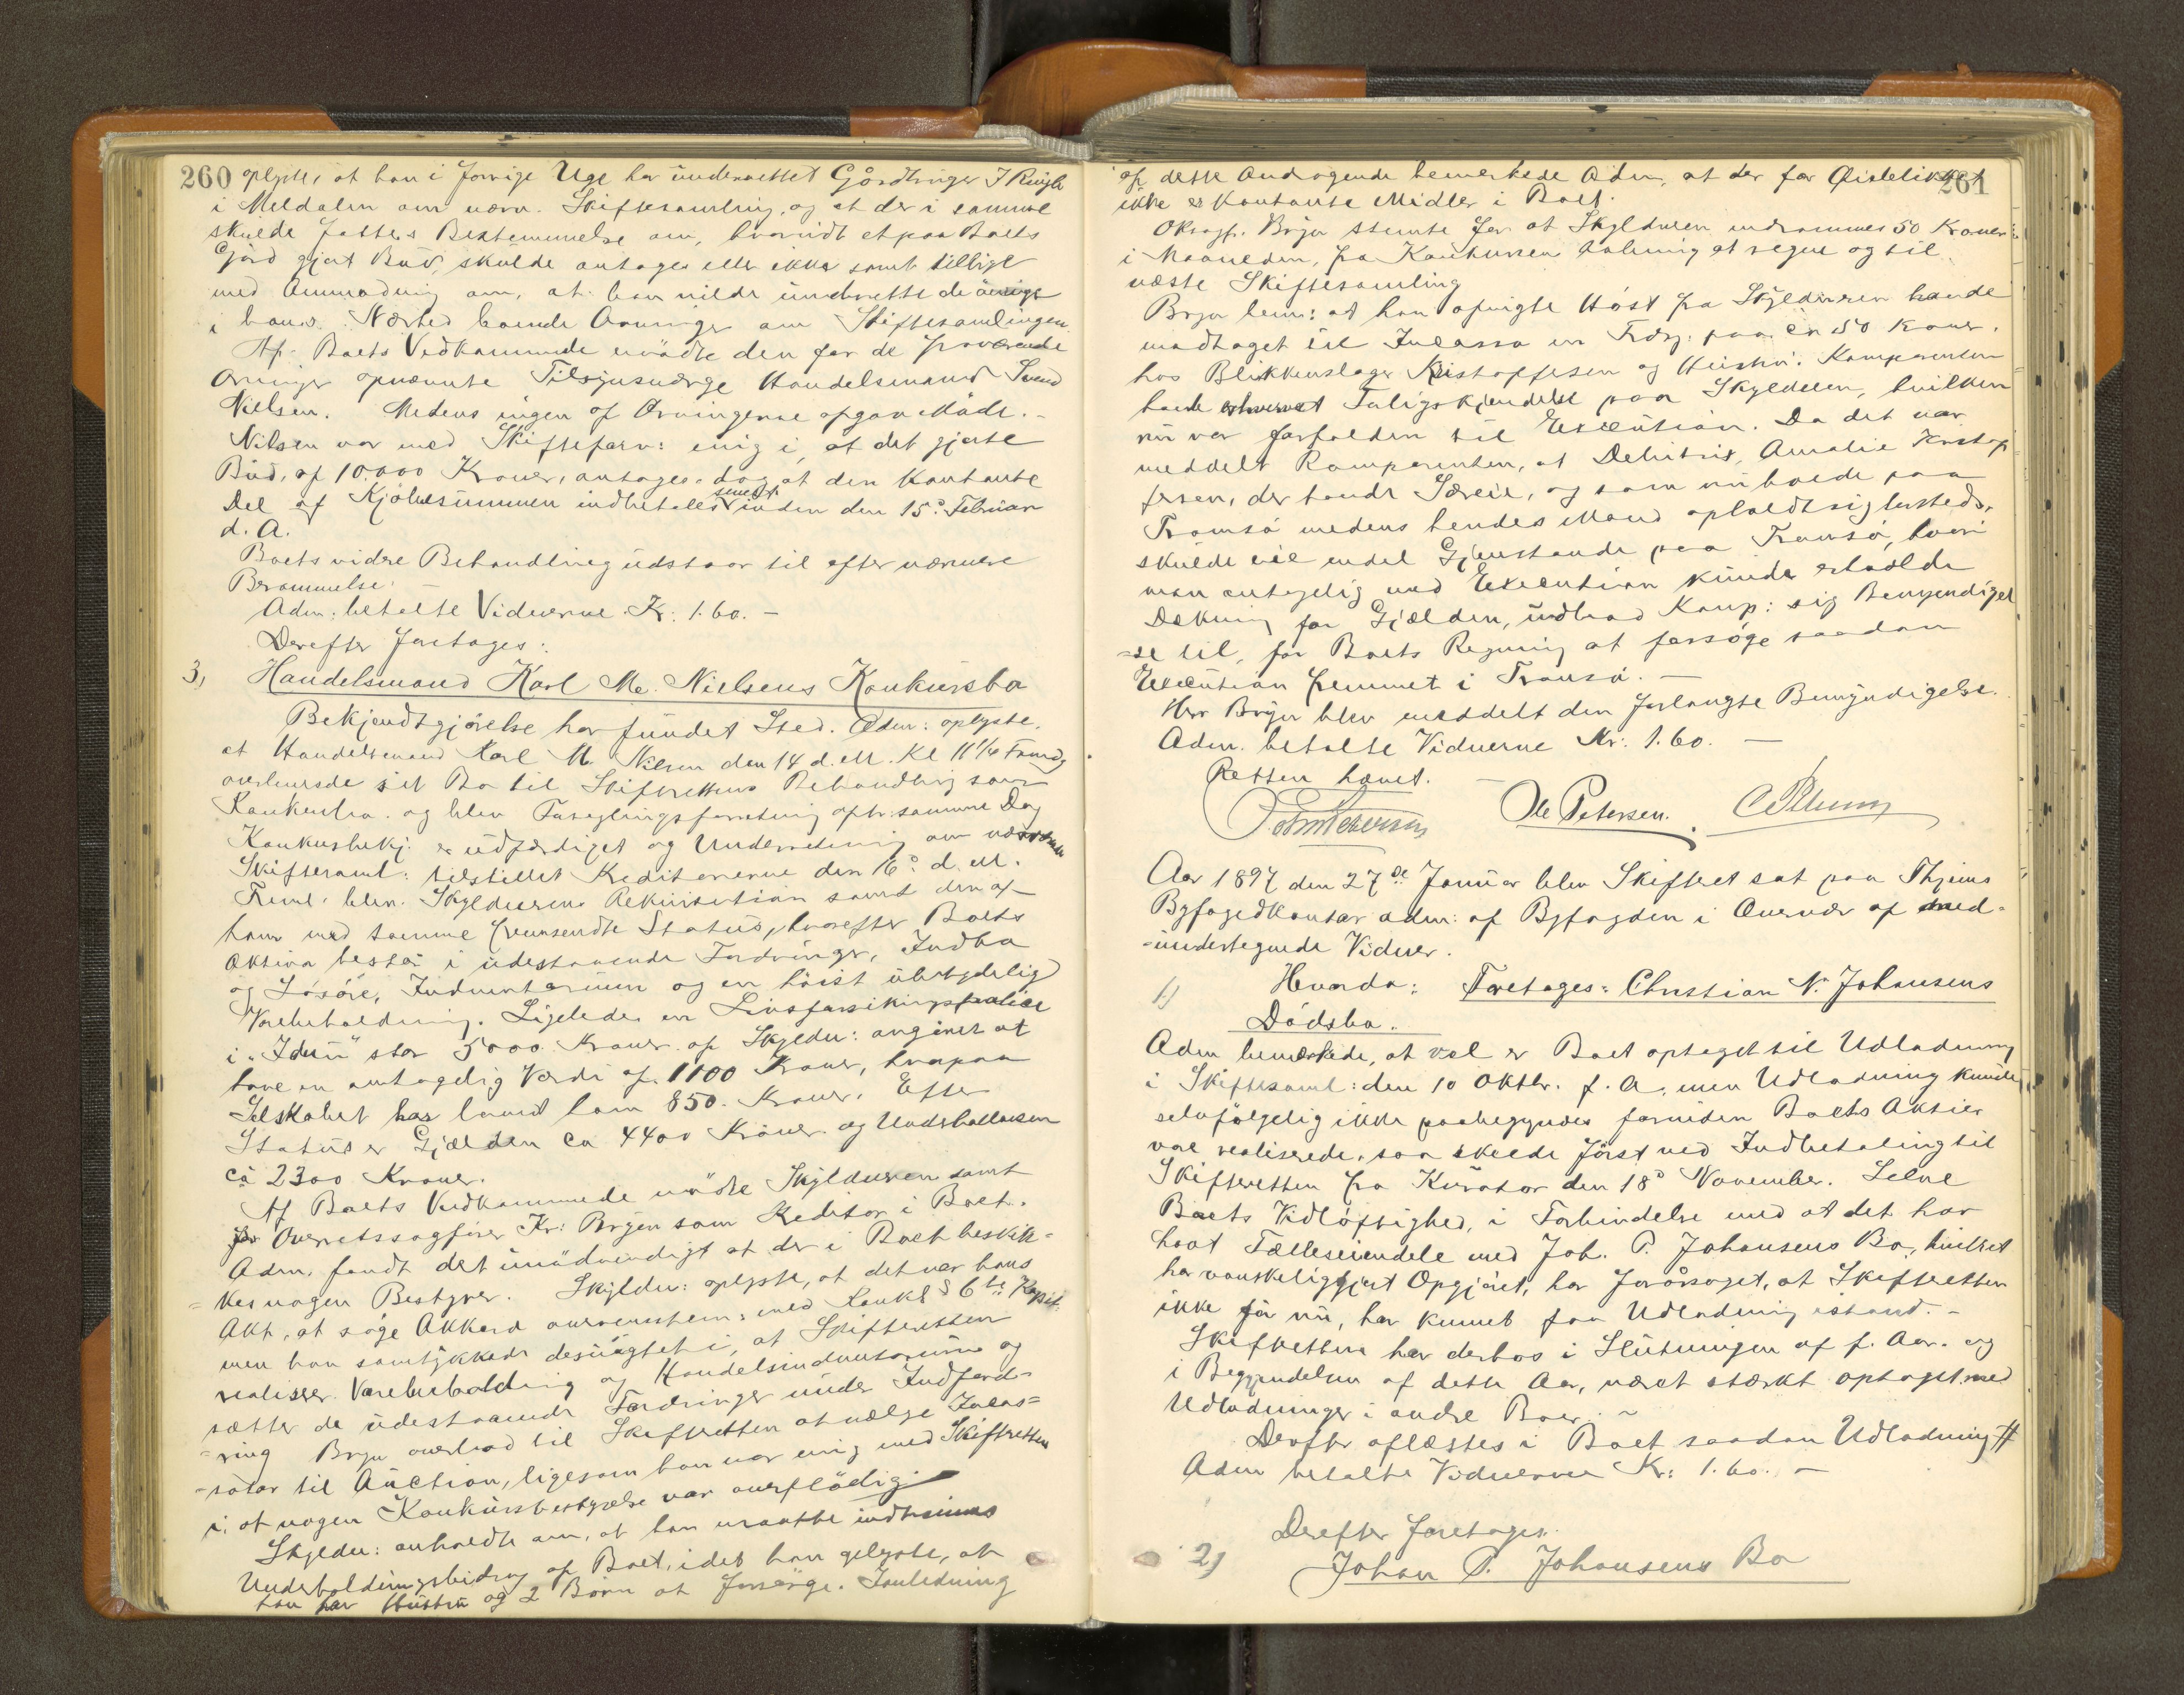 260 oplyste, at han i forrige Uge har underrettet Gårdbruger I Ringle
i Meldalen om nærv. Skiftesamling, og at der i samme
skulde fattes Bestemmelse om, hvorvidt et paa Boets
Gård gjort Bud, skulde antages eller ikke samt tillige
med Anmodning om, at han vilde underrette de øvrige
i hans Nærhed boende Arvinger om Skiftesamlingen.
Af Boets Vedkommende mødte den for de fraværende
Arvinger opnævnte Tilsynsværge Handelsmand Svend
Nielsen. Medens ingen af Arvingerne afgav Møde. -
Nilsen var med Skifteforv: enig i, at det gjorte
Bud, af 10.000 Kroner, antages, dog at den Kontante
Del af Kjøbesummen indbetales senest inden den 15de Februar
d. A.
Boets vidre Behandling udstaar til efter nærmere
Berammelse. -
Adm: betalte Vidnerne Kr. 1.60. -
Derefter foretages:
3, Handelsmand Karl M. Nielsens Konkursbo
Bekjendtgjørelse har fundet Sted. Adm: oplyste,
at Handelsmand Karl M. Nilsen den 14 d. M. Kl 11 1/4 Formdg
overleverede sit Bo til Skifterettens Behandling som
Konkursbo. og blev Forseglingsforretning afh: samme Dag
Konkursbekj. er udfærdiget og Underretning om nærværende
Skiftesaml: tilstillet Kreditorerne den 16de d. M.
Freml. blev Skyldnerens Rekvisition samt den af
ham med samme fremsendte Status, hvorefter Boets
Aktiva består i udestaaende Fordringer, Indbo
og Løsøre, Inventarium og en høist ubetydelig
Varebeholdning. Ligeledes en Livsforsikringspolice
i "Idun" stor 5000 Kroner af Skyldn: angivet at
have en antagelig Værdi af 1100 Kroner, hvorpaa
Selskabet har laant ham 850. Kroner. Efter
Status er Gjælden ca 4400 Kroner og Underballancen
ca 2300 Kroner.
Af Boets Vedkommende mødte Skyldneren samt
Overretssagfører Kr: Brÿn som Kreditor i Boet.
Adm. fandt det unødvendigt at der i Boet beskik-
=kes nogen Bestyrer. Skyldn: oplyste, at det var hans
Akt, at søge Akkord overensstem: med Konkl § 6te Kapit.
men han samtykkede desuagtet i, at Skifteretten
realiserer Varebeholdning og Handelsindventarium og
sætter de udestaaende Fordringer under Indford-
=ring Bryn overlod til Skifteretten at vælge Inkas=
=sator til Auction, ligesom han var enig med Skifteretten
i. at nogen Konkursbestyrelse var overflødig
Skyldn: anholdt om, at han maatte indrømmes
Underholdningsbidrag af Boet, idet han oplyste, at
han har Hustru og 2 Børn at forsørge. I anledning
261
af dette Andragende bemerkede Adm, at der for Øieblikket
ikke er Kontante Midler i Boet.
Oksagf. Brÿn stemte for at Skyldneren indrømmes 50 Kroner
i Maaneden, fra Konkursens åbning at regne og til
næste Skiftesamling
Bryn bem: at han afvigte Høst fra Skyldneren havde
modtaget til Incasso en Fordg: paa ca 150 Kroner,
hos Blikkenslager Kristoffersen og Hustru. Komparenten
havde erhvervet Forligskjendelse paa Skyldnen, hvilken
nu var forfalden til Execution. Da det var
meddelt Komparenten, at Debitrix, Amalie Kristof
fersen, der havde Særeie, og som nu boede paa
Tromsø medens hendes Mand opholdt sig hersteds,
skulde eie endel Gjenstande paa Tromsø, hvori
man antagelig ved Execution kunde erholde
Dækning for Gjælden, udbad Komp: sig Bemyndigel
=se til, for Boets Regning at forsøge saadan
Execution fremmet i Tromsø. -
Herr Brÿn blev meddelt den forlangte Bemyndigelse.
Adm. betalte Vidnerne Kr: 1.60. -
Retten hævet. -
Ole Petersen.
Aar 1897 den 27de Januar blev Skifteret sat paa Thjems
Byfogedkontor adm: af Byfogden i Overvær af med-
=undertegnede Vidner.
1.) Hvorda: Foretages: Christian N. Johansens
Dødsbo.
Adm bemærkede, at vel er Boet optaget til Udlodning
i Skiftesaml: den 10 Oktbr. f. A., men Udlodning kunde
selvfølgelig ikke paabegyndes forinden Boets Aktier
var realiserede, saa skeede først ved Indbetaling til
Skifteretten fra Kurator den 18de November. Selve
Boets Vidløftighed, i Forbindelse med at det har
havt Fælleseiendele med Joh. P. Johansens Bo, hvilket
har vanskeliggjort Opgjøret, har forårsaget, at Skifteretten
ikke før nu, har kunnet faa Udlodning istand. -
Skifteretten har derhos i Slutningen af f. Aar. og
i Begyndelsen af dette Aar, været stærkt optaget med
Udlodninger i andre Boer. -
Derefter oplæstes i Boet saadan Udlodning #
Adm betalte Vidnerne Kr: 1.60. -
Derefter foretages.
2) Johan P. Johansens Bo